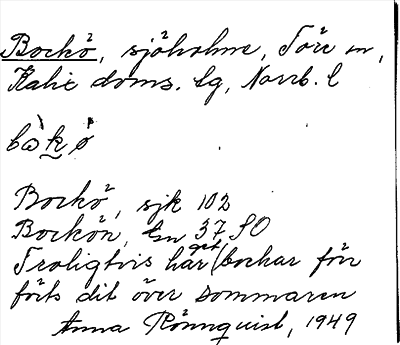 Bockö, sjöholme, Töre sn,
Kalix doms. lg, Norrb. l
bòkö
Bockö, sjk 102
Bockön, En 37 SO
Troligtvis har get/bockar förr
förts dit över sommaren
Anna Rönnquist, 1949